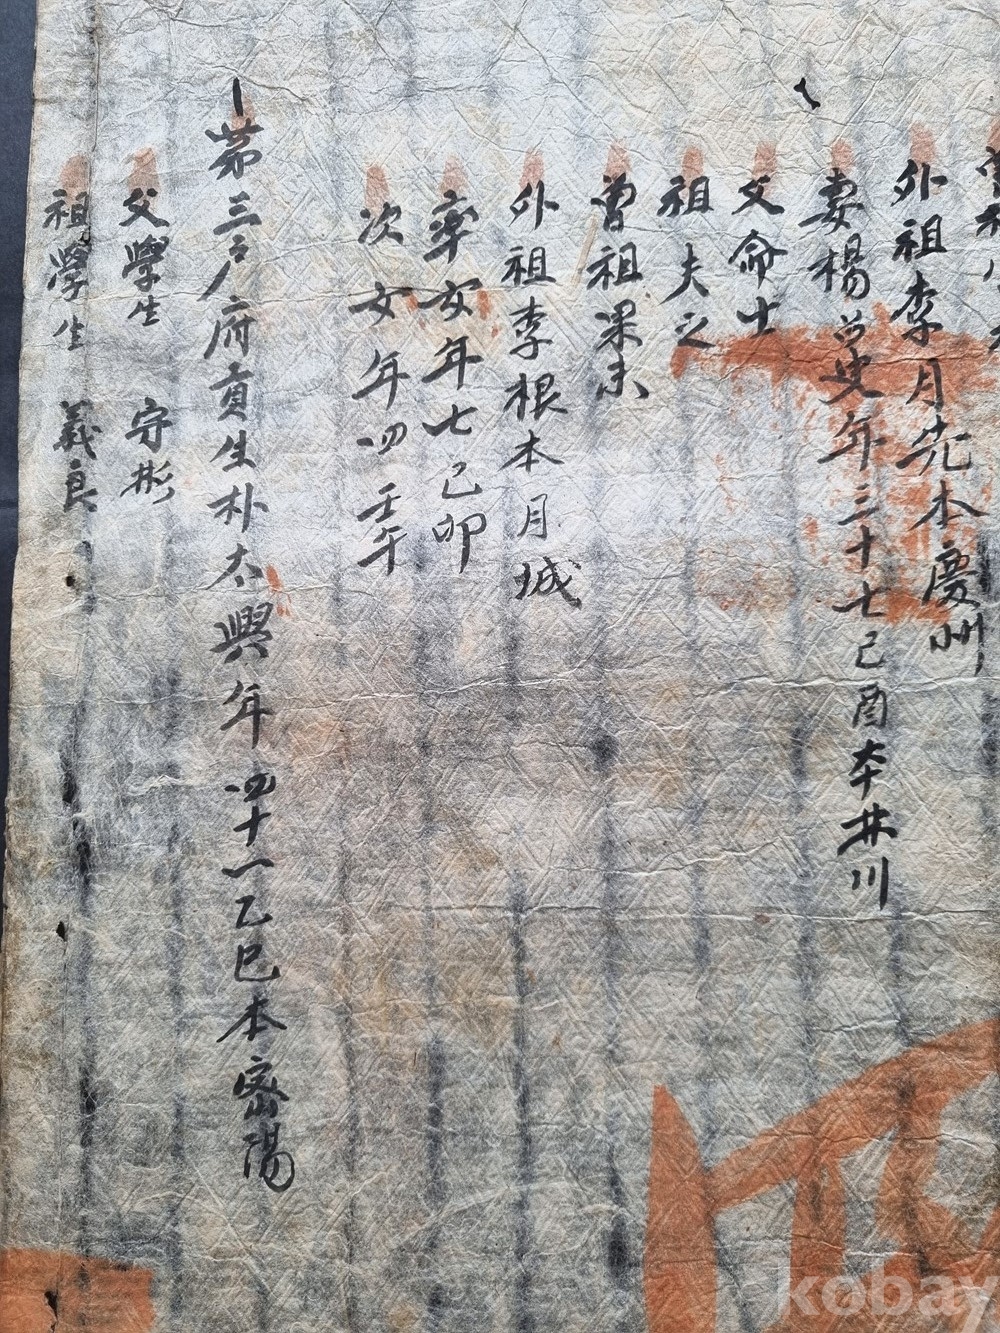 曾祖
外祖李月光本慶州
妻楊召史年三十七己酉本井川
父命士
祖夫之
曾祖果未
外祖李根本月城
率女年七己卯
次女年四壬午
第三戶府貢生朴太興年四十一乙巳本密陽
父學生 守彬
祖學生 義良
kobay